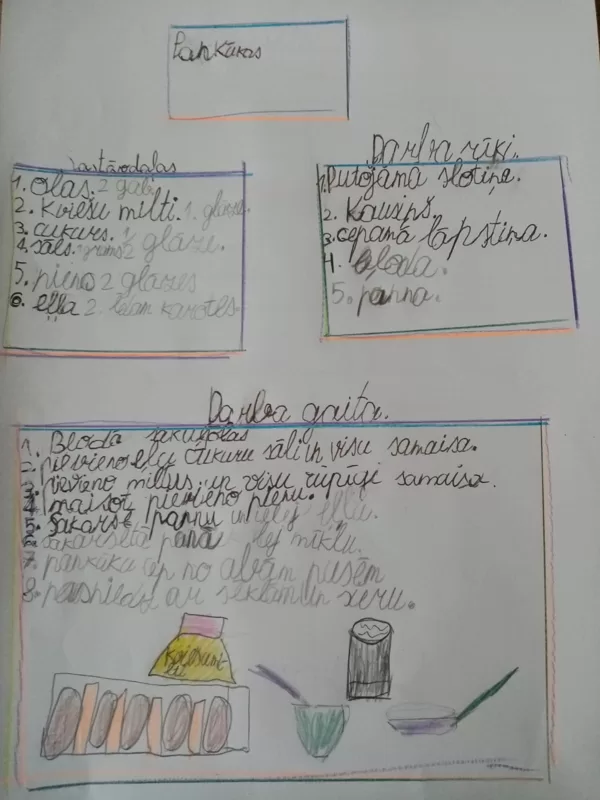 Pankūkas
Sastāvdaļas
1. olas. 2 gabi
2. kviešu milti. 1. glāze.
3. cukurs. 1
4. sāls. glāze.
5. piens 2 glāzes
6. eļļa 2. ēdam karotes.
Darba rīki.
1. Putojamā slotiņa.
2. Kausiņš.
3. cepamā lāpstiņa.
4. bļoda.
5. panna.
Darba gaita.
1. Blodā olas
2. pievieno cukuru sāli un visu samaisa.
3. pievieno miltus. un visu rūpīgi samaisa.
4. maisot, pievieno pienu.
5. sakarsē pannu ellu.
6. sakarsētā panā lej mīklu.
7. pankūku cep no abām pusēm
8. pasniedz ar un